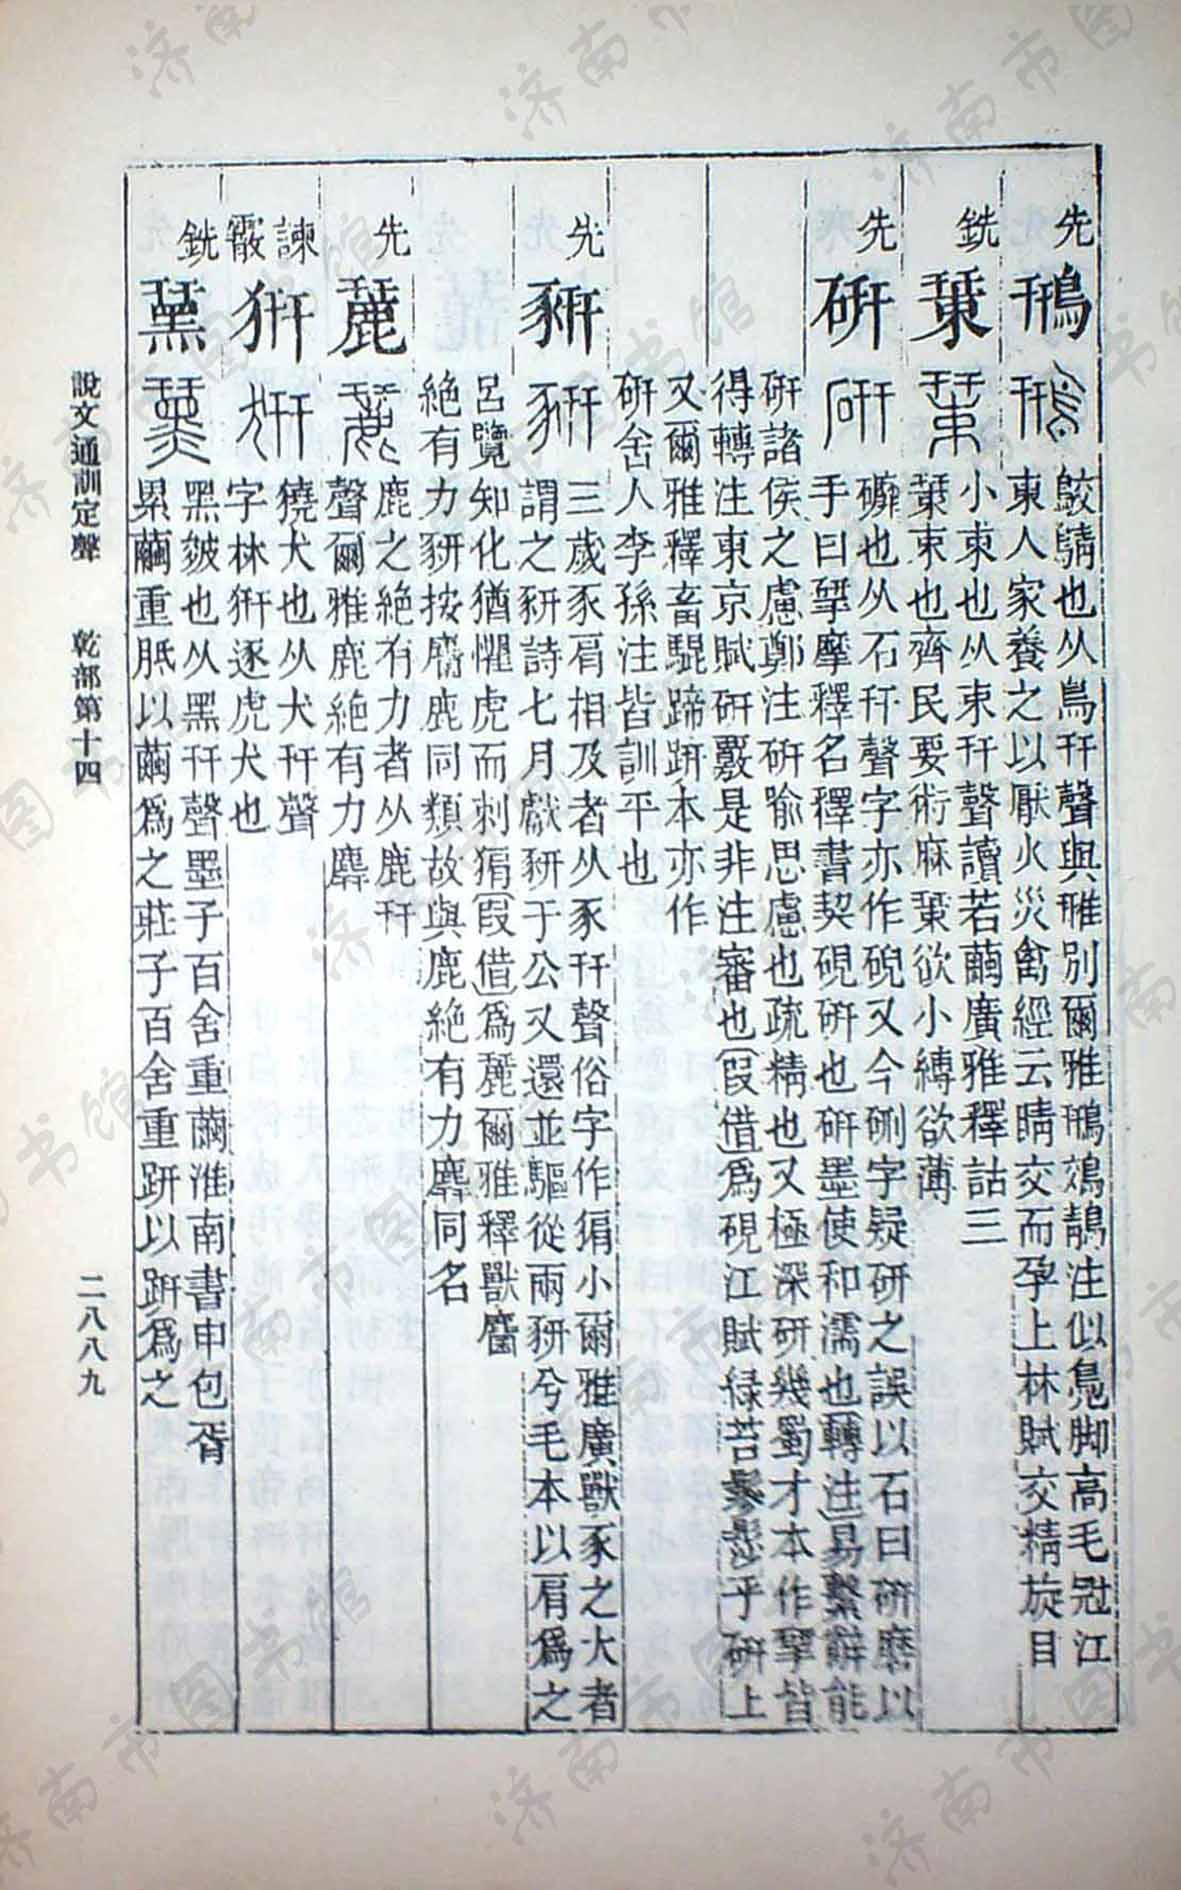 先
鳽
鵁鶄也从鳥幵聲與雃別爾雅鳽鵁鶄注似鳧脚高毛冠江
東人家養之以厭火災禽經云睛交而孕上林賦交精旋目
銑
𣗥
小束也从束幵聲讀若繭廣雅釋詁三
𣗥束也齊民要術麻𣗥欲小縛欲薄
先
硏
䃺也从石幵聲字亦作硯又今硎字疑硏之誤以石曰硏磨以
手曰揅摩釋名釋書契硯硏也硏墨使和濡也〔轉注〕易繫辭能
硏諸侯之慮鄭注硏喻思慮也疏精也又極深硏幾蜀才本作揅皆
得轉注東京賦硏覈是非注審也〔叚借〕爲硯江賦緑苔鬖髿乎硏上
又爾雅釋畜騉蹄趼本亦作
硏舍人李孫注皆訓平也
先
豣
三歲豕肩相及者从豕幵聲俗字作猏小爾雅廣獸豕之大者
謂之豣詩七月獻豣于公又還並驅從兩豣兮毛本以肩爲之
呂覽知化猶懼虎而刺猏〔叚借〕爲麉爾雅釋獸麕
絶有力豣按麕鹿同類故與鹿絶有力麉同名
先
麉
鹿之絶有力者从鹿幵
聲爾雅鹿絶有力麉
諫
霰
豜
獟犬也从犬幵聲
字林豜逐虎犬也
銑
䵤
黑皴也从黑幵聲墨子百舍重繭淮南書申包胥
累繭重胝以繭爲之莊子百舍重趼以趼爲之
說文通訓定聲　乾部第十四　二八八九
济南市图书馆